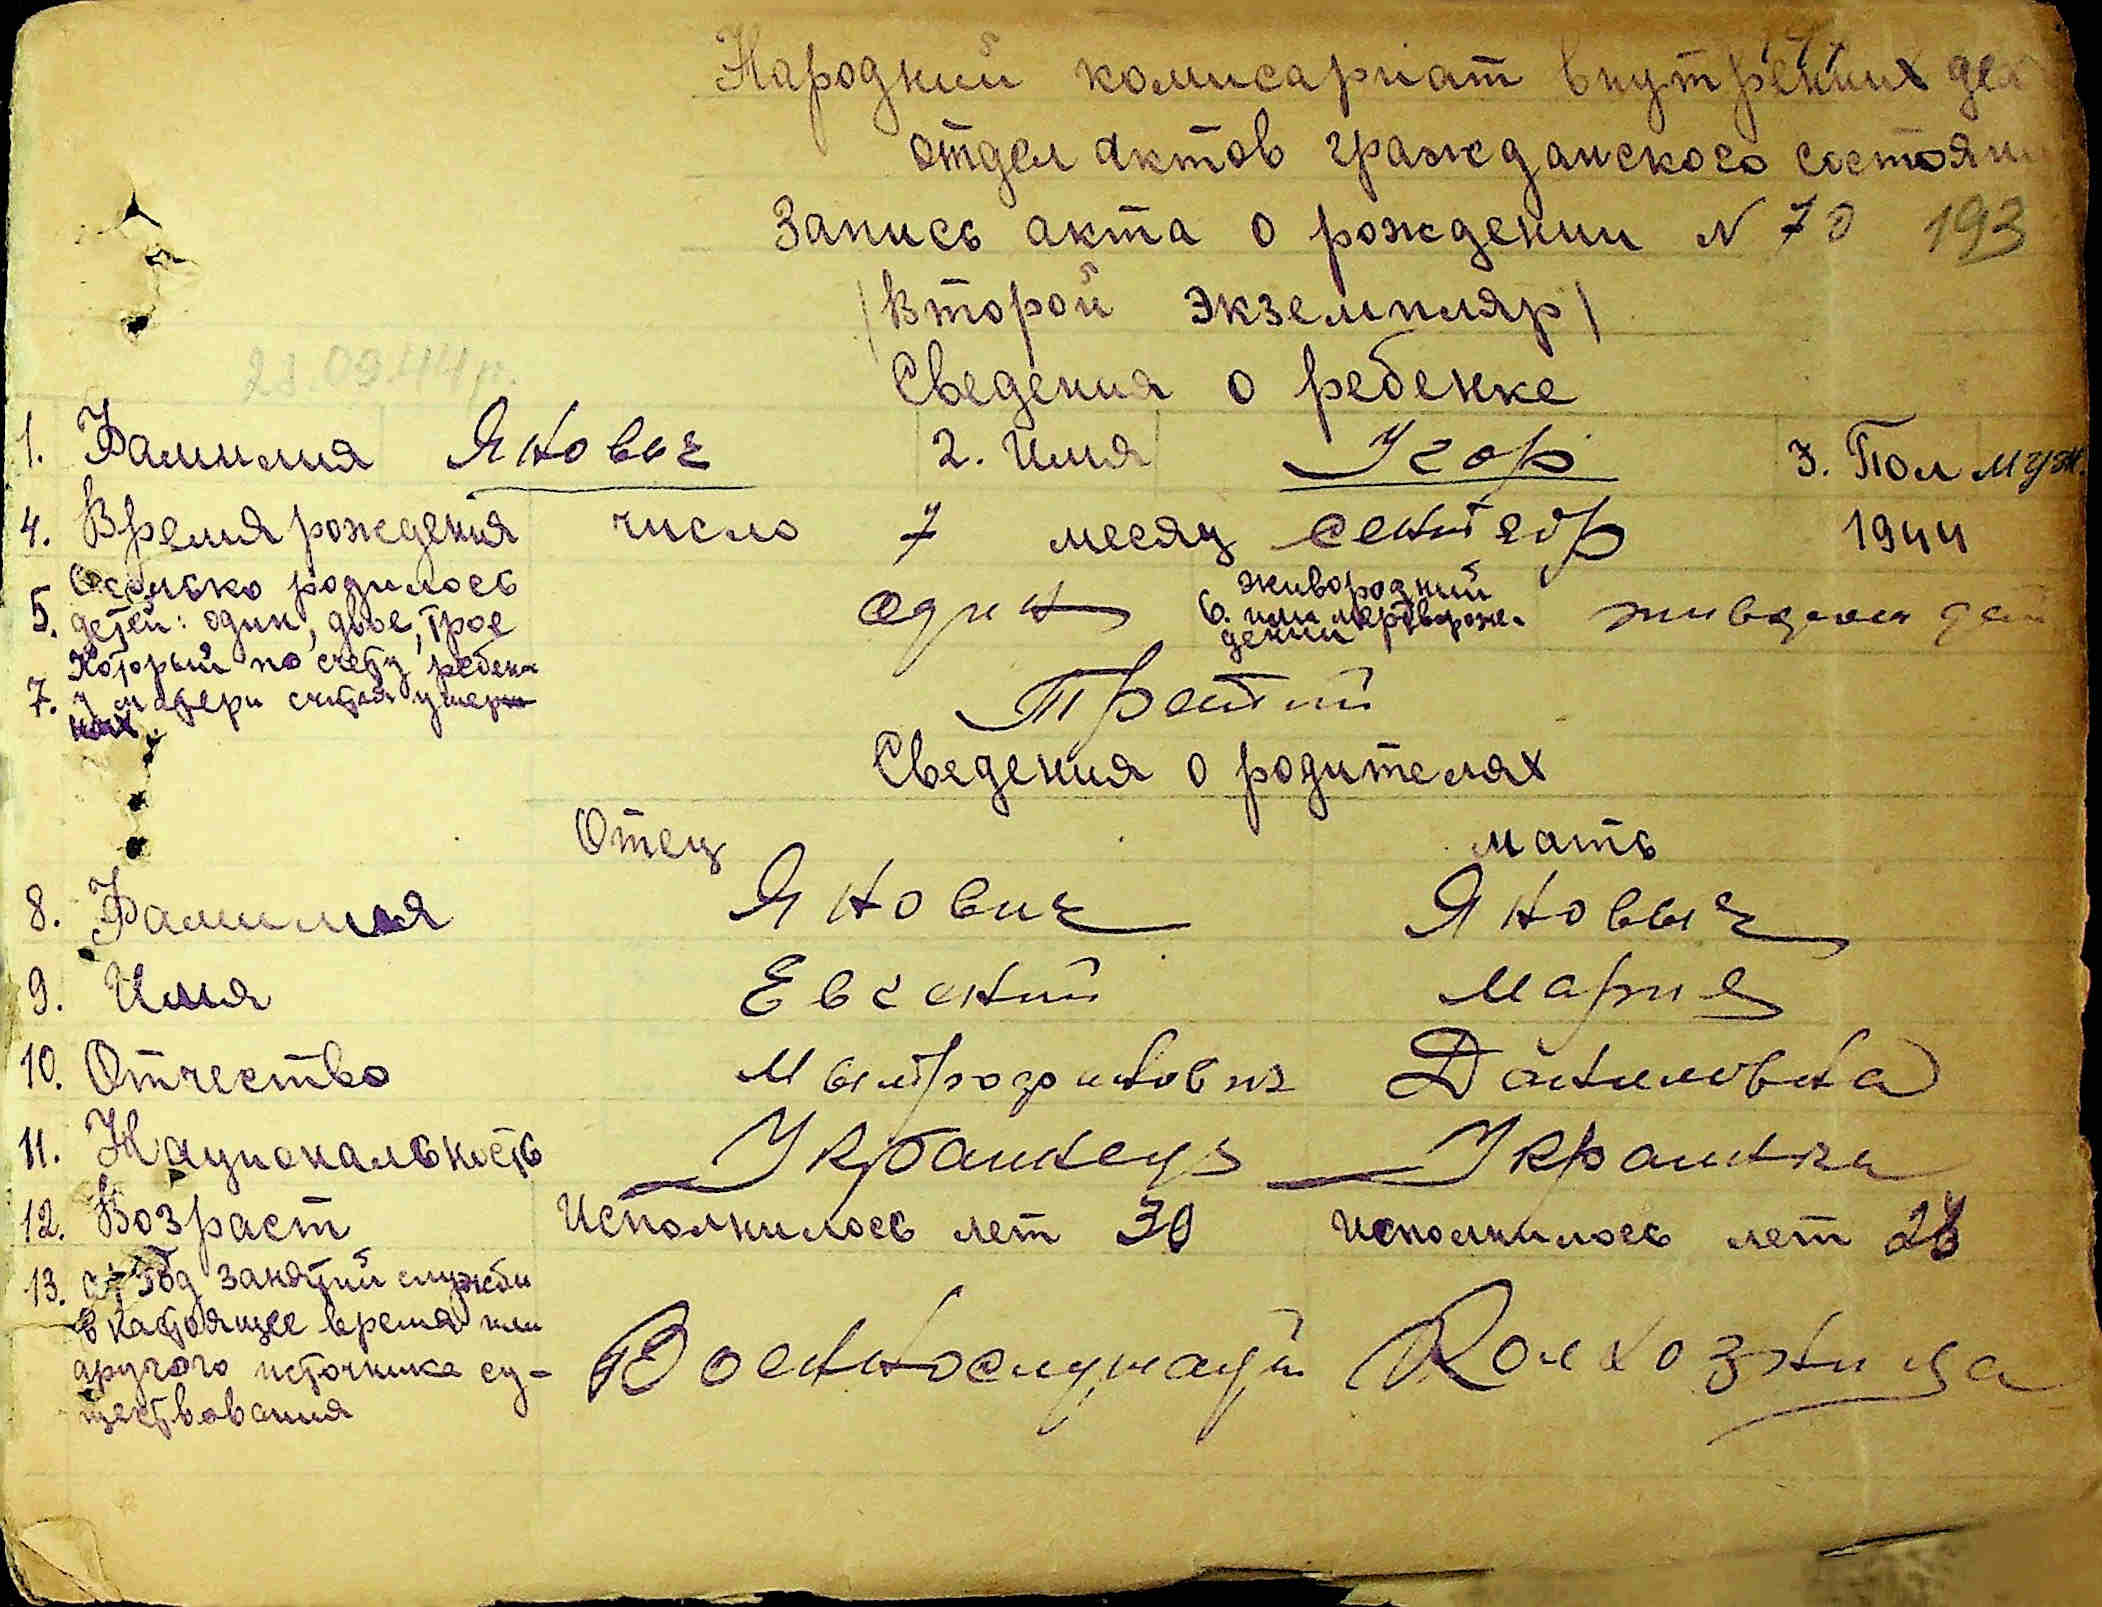 Народний комисариат внутренних дел
отдел актов гражданского состояни
Запись акта о рождении N 70 193
/Второй экземпляр/
23.09.44р.
Сведения о ребенке
1. Фамилия Яновыч 2. Имя Угор 3. Пол муж.
4. Время рождения число 7 месяц сентябр 1944
5. Сколько родилось детей: один, двое, трое один 6. живородний или мертворожедении
7. Который по счету ребенк у матери считая умерших Третий
Сведения о родителях
Отец мать
8. Фамилия Янович Яновыч
9. Имя Евгений Мария
10. Отчество Мытрофанович Даниловна
11. Национальность Украинець Украинка
12. Возраст Исполнилось лет 30 исполнилось лет
13. а/ Род занятий службы в настоящее время или другого источника существования Военнослужащй Колхозница